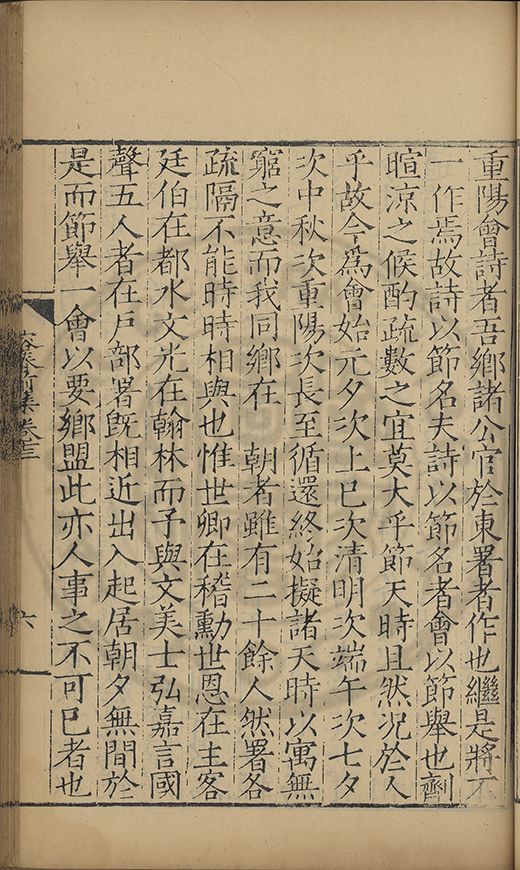 重陽會詩者吾鄉諸公官於東署者作也繼是將不
一作焉故詩以節名夫詩以節名者會以節舉也劑
暄涼之候酌疏數之宜莫大乎節天時且然况於人
乎故今爲會始元夕次上巳次清明次端午次七夕
次中秋次重陽次長至循還終始擬諸天時以寓無
窮之意而我同鄉在 朝者雖有二十餘人然署各
疏隔不能時時相與也惟世卿在稽勳世恩在主客
廷伯在都水文光在翰林而予與文美士弘嘉言國
聲五人者在戸部署旣相近出入起居朝夕無間於
是而節舉一會以要鄉盟此亦人事之不可已者也
容春前集卷十三
六